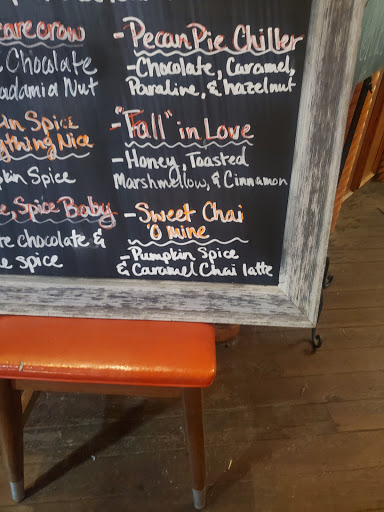 carecrow
Chocolate
adamia Nut
Spice
ything Nice
pkin Spice
e, Spice Baby
te chocolate &
e spice
-Pecan Pie Chiller
-Chocolate, Caramel,
Paraline, & hazelnut
-"Fall" in Love
-Honey, Toasted
Marshmellow, & Cinnamon
-Sweet Chai
'O mine
-Pumpkin Spice
& Caramel Chai latte